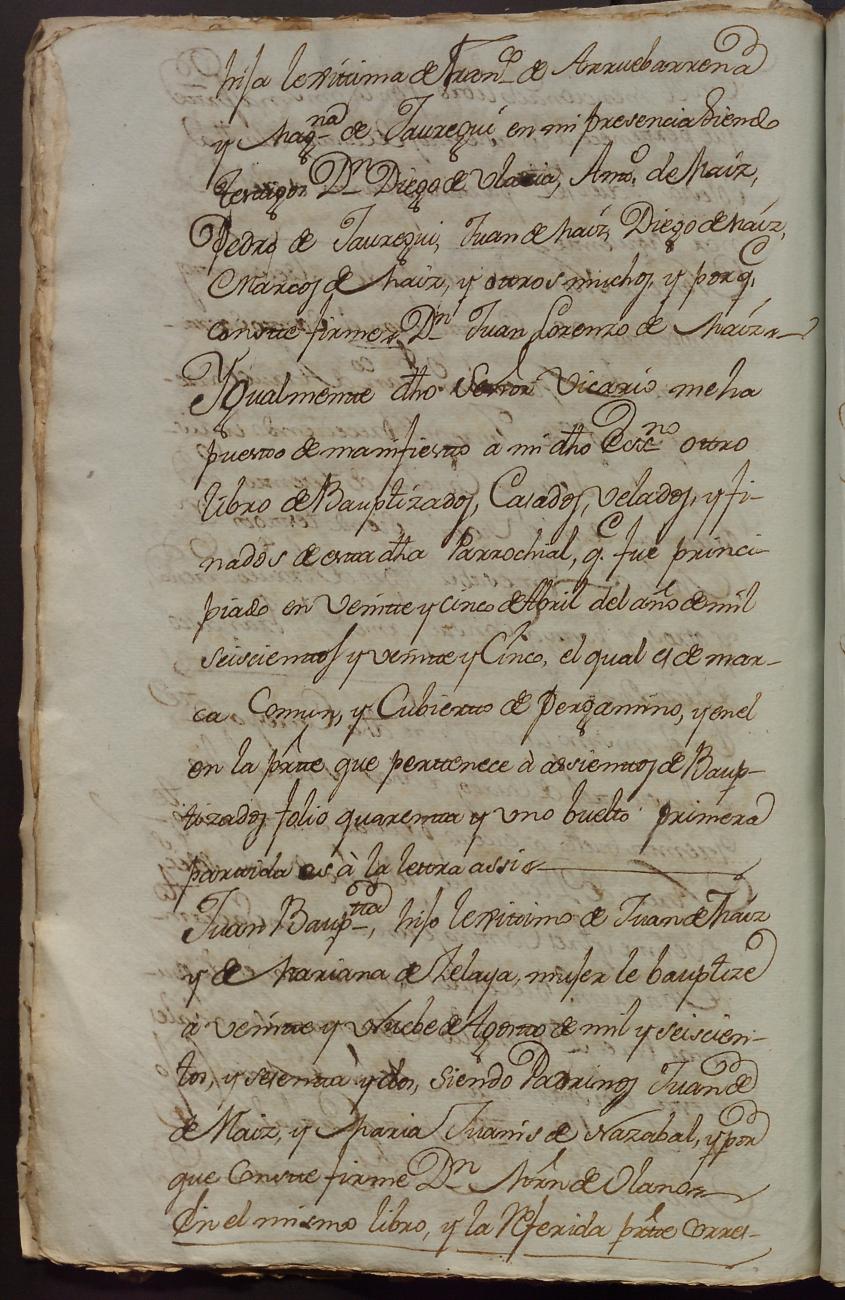 hija lexitima de Fran.co de Arruebarrena
y Mag.na de Jauregui en mi presencia siendo
testigos Dn Diego de Amo. de Maiz,
Pedro de Jauregui, Juan de Maiz, Diego de Maiz,
Marcos de Maiz, y ottros muchos, y porq.
constte firme Dn Juan Lorenzo de Maiz
Ygualmentte dho Señor Vicario me ha
puesto de manifiestto a mi dho Esc.no ottro
libro de Bauptizados, Casados, Velados, y fi-
nados de estta dha Parrochial, q.e fue princi-
piado en Veintte y cinco de Abril del año de mil
seiscienttos y veintte y Cinco, el qual es de mar-
ca Comun, y Cubiertto de pergamino, y en el
en la partte que perttenece à assienttos de Baup-
tizados folio quarentta y uno buelto primera
parttida es à la lettra assi
Juan Baup.tta, hijo lexittimo de Juan de Maiz
y de Mariana de Zelaya, mujer le bauptize
a veintte y Nuebe de Agostto de mil y seiscien-
tos, y sesentta y dos, siendo Padrinos Juan de
de Maiz, y Maria Juanis de Nazabal, y por
que Constte firme Dn Mrn de Olano
En el mismo libro, y la Referida partte corres-